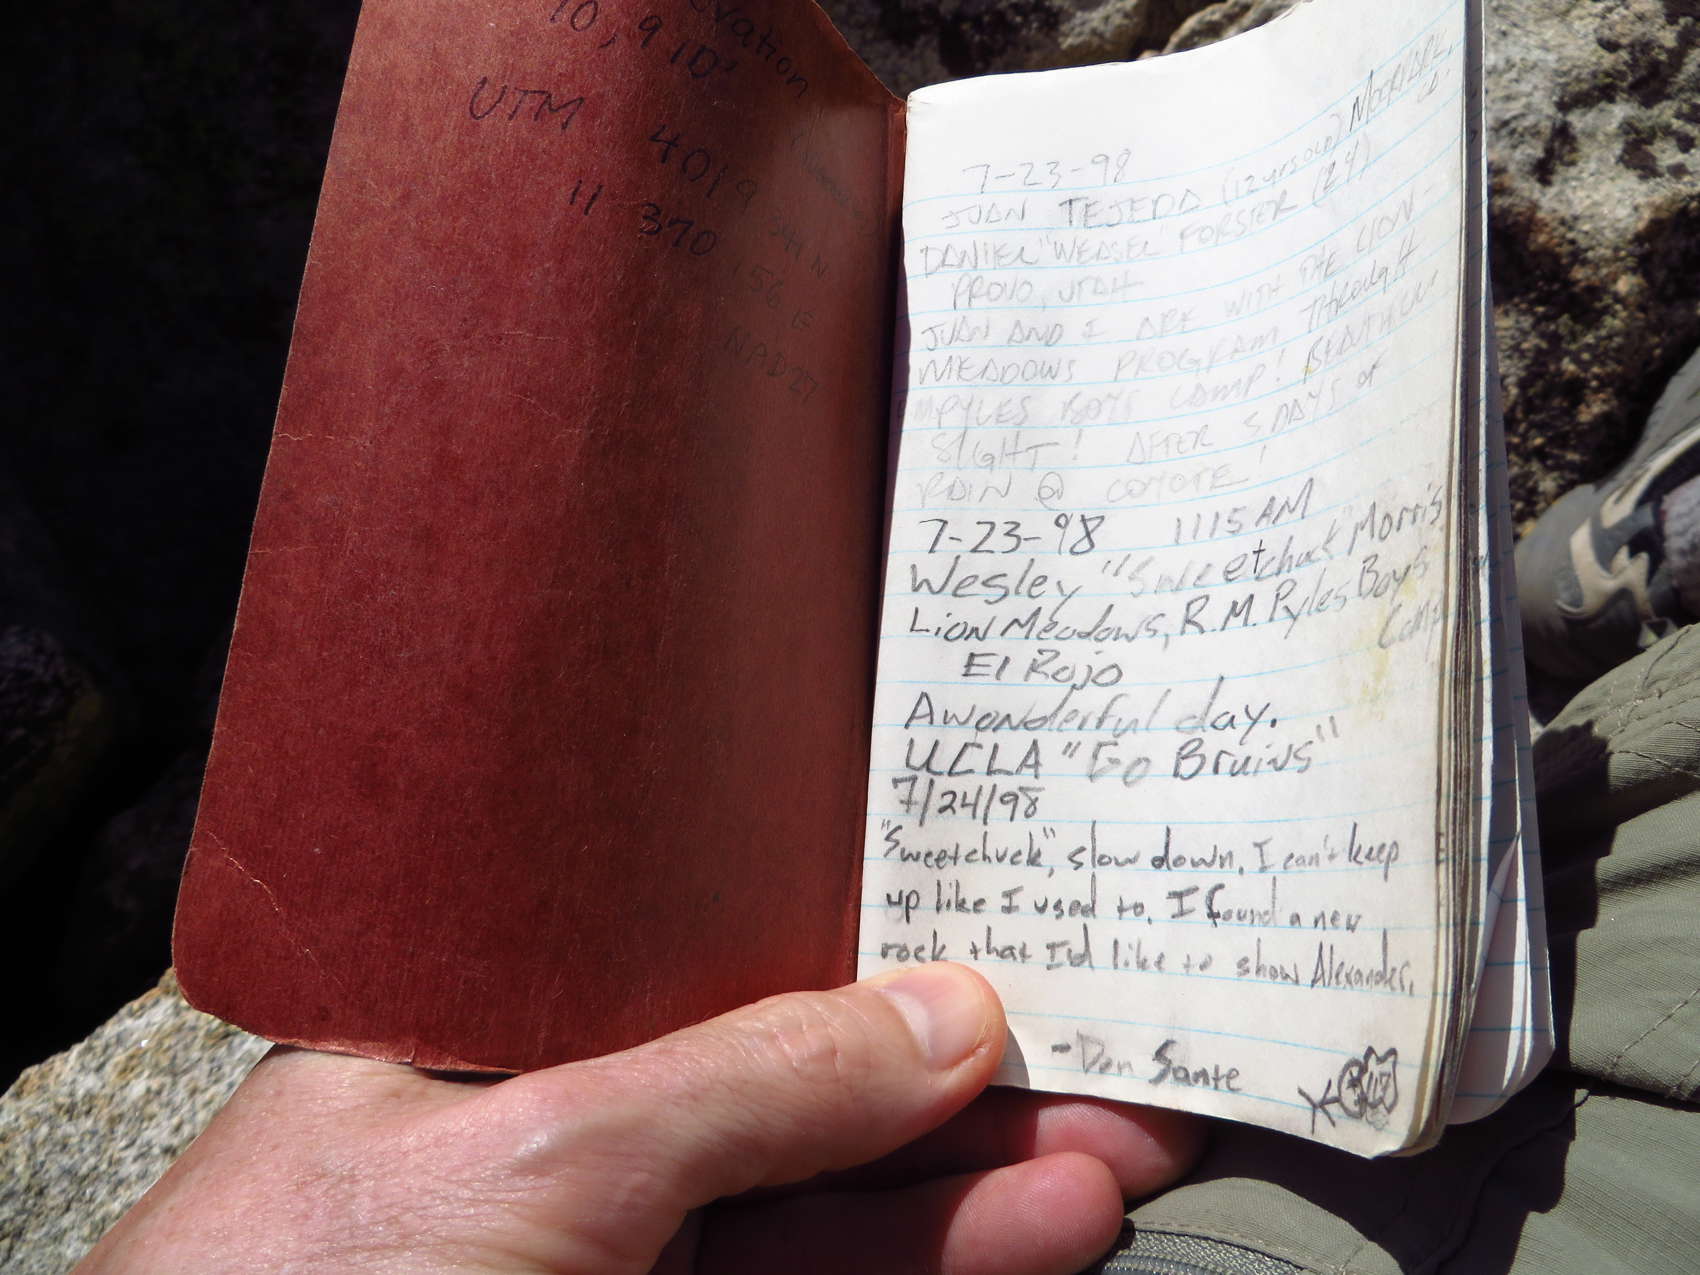 10,910'
UTM 4019 341 N
11 370,156 E
NAD27
7-23-98
JUAN TEJEDA (12 yrs old) MOORPARK, CA
DANIEL "WEASEL" FORSTER (24)
PROVO, UTAH
JUAN AND I ARE WITH THE LION
MEADOWS PROGRAM THROUGH
PYLES BOYS CAMP! BEAUTIFUL
SIGHT! AFTER 5 DAYS OF
RAIN @ COYOTE!
7-23-98 1115 AM
Wesley "Sweetchuck" Morris
Lion Meadows, R.M. Pyles Boys Camp
El Rojo
A wonderful day.
UCLA "Go Bruins"
7/24/98
"Sweetchuck", slow down. I can't keep
up like I used to. I found a new
rock that I'd like to show Alexander.
- Don Sante